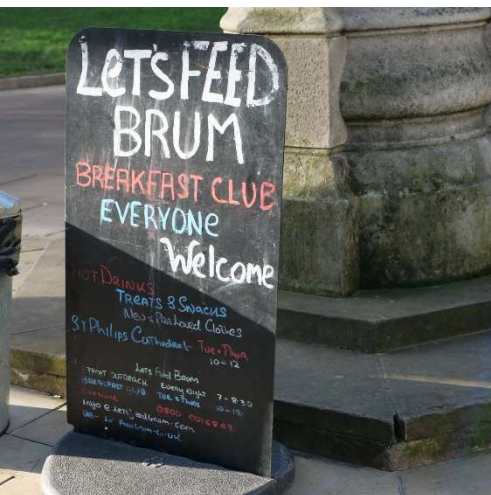 LET'S FEED
BRUM
BREAKFAST CLUB
EVERYONE
Welcome
HOT DRINKS
TREATS & SNACKS
New & PreLoved Clothes
ST Philips Cathedral Tue & Thur
10-12
Lets Feed Brum
STREET OUTREACH Every Night 7-8:30
BREAKFAST CLUB TUE & Thur 10-12
0800 0016847